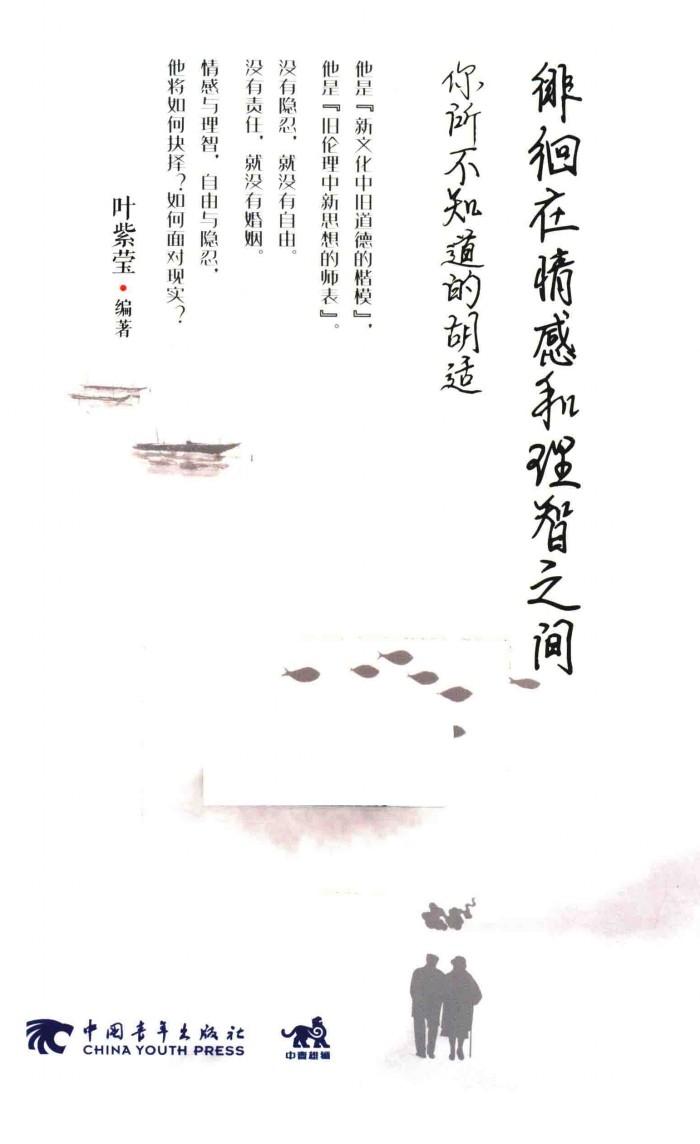 徘徊在情感和理智之间
你所不知道的胡适
他是『新文化中旧道德的楷模』，
他是『旧伦理中新思想的师表』。
没有隐忍，就没有自由。
没有责任，就没有婚姻。
情感与理智，自由与隐忍，
他将如何抉择？如何面对现实？
叶紫莹·编著
中国青年出版社
CHINA YOUTH PRESS
中青雄狮